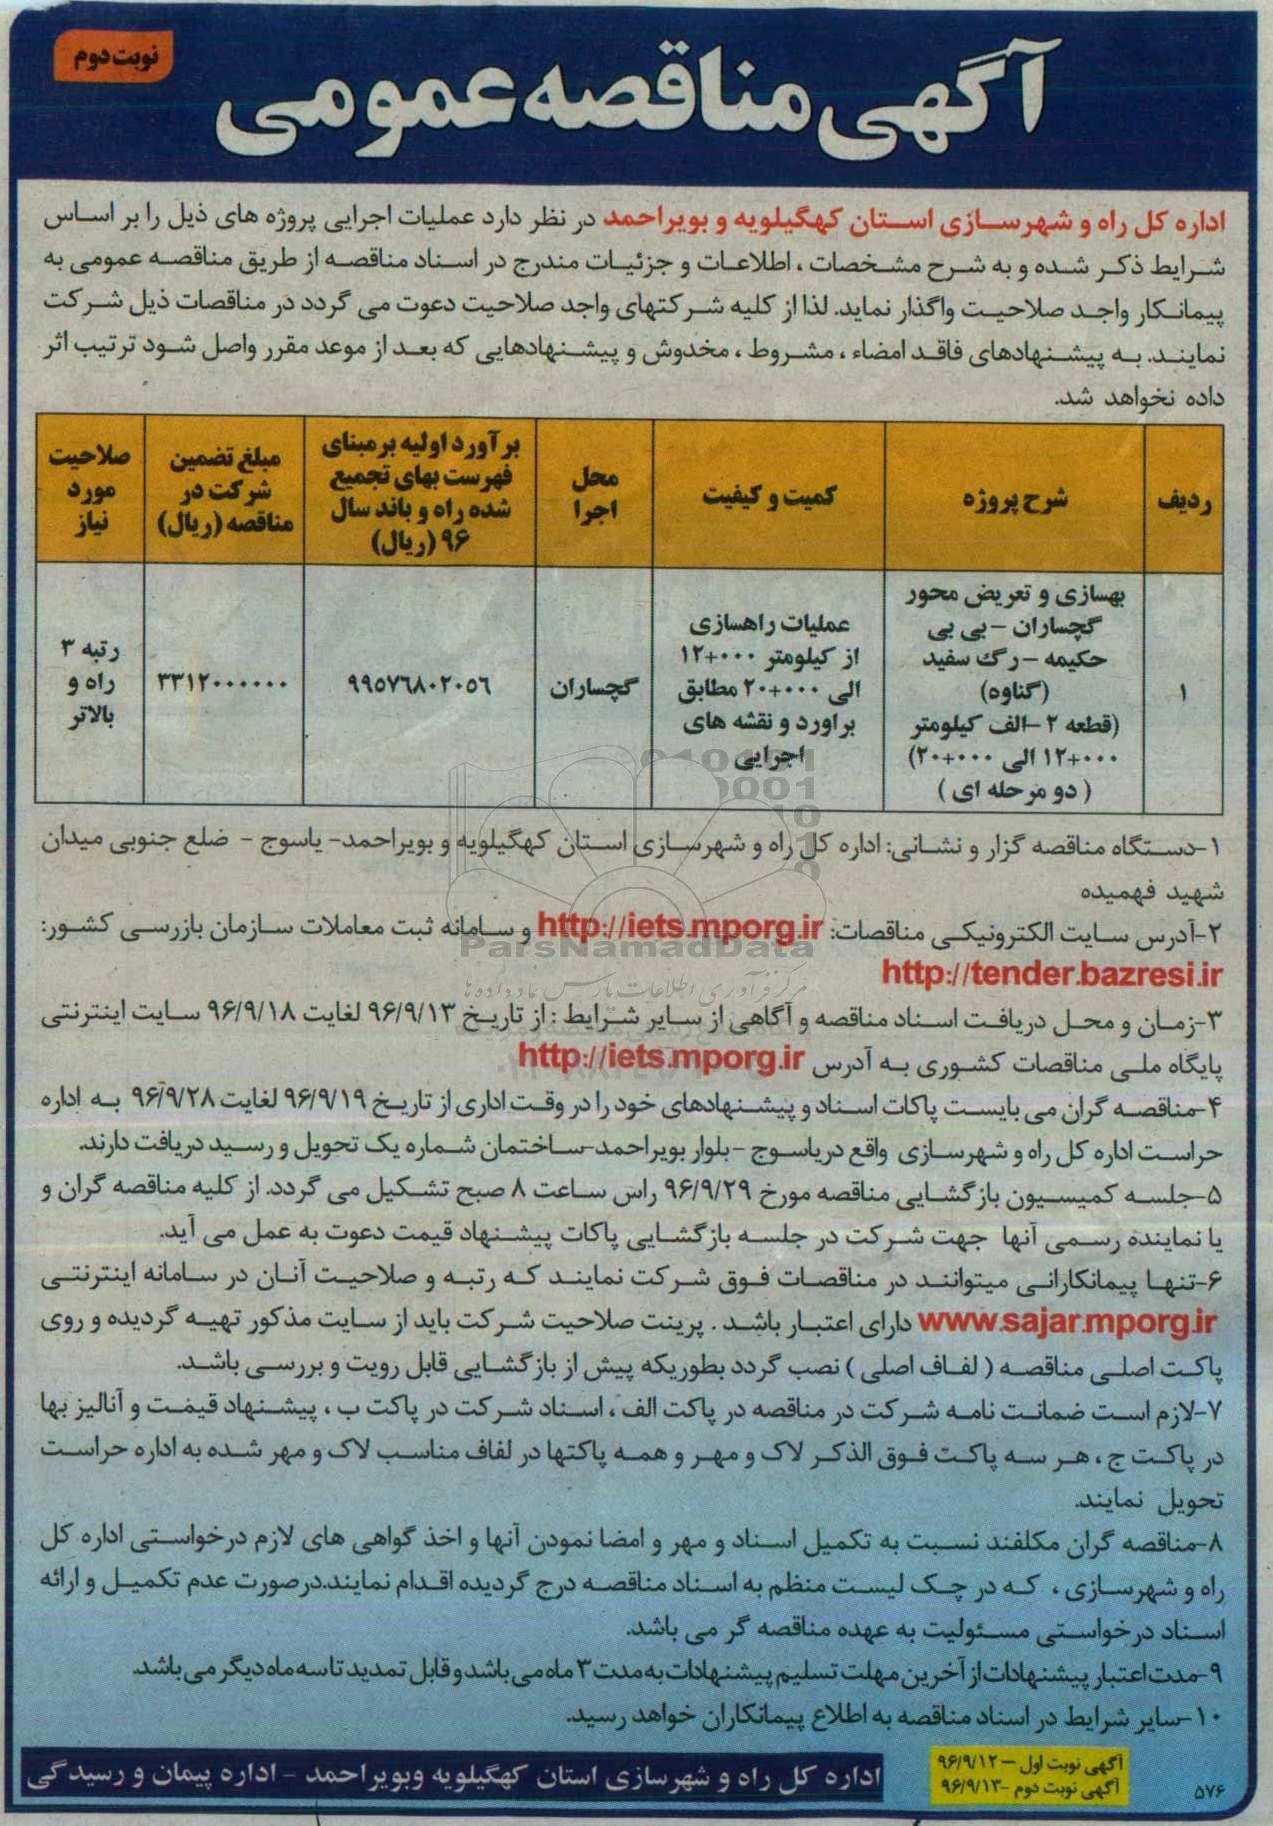 نوبت دوم
آگهی مناقصه عمومی
اداره کل راه و شهرسازی استان کهگیلویه و بویراحمد در نظر دارد عملیات اجرایی پروژه های ذیل را بر اساس
شرایط ذکر شده و به شرح مشخصات ، اطلاعات و جزئیات مندرج در اسناد مناقصه از طریق مناقصه عمومی به
پیمانکار واجد صلاحیت واگذار نماید. لذا از کلیه شرکتهای واجد صلاحیت دعوت می گردد در مناقصات ذیل شرکت
نمایند. به پیشنهادهای فاقد امضاء ، مشروط ، مخدوش و پیشنهادهایی که بعد از موعد مقرر واصل شود ترتیب اثر
داده نخواهد شد.
ردیف
شرح پروژه
کمیت و کیفیت
محل
اجرا
برآورد اولیه برمبنای
فهرست بهای تجمیع
شده راه و باند سال
۹۶ (ریال)
مبلغ تضمین
شرکت در
مناقصه (ریال)
صلاحیت
مورد
نیاز
۱
بهسازی و تعریض محور
گچساران – بی بی
حکیمه – رگ سفید
(گناوه)
(قطعه ۲ -الف کیلومتر
۱۲+۰۰۰ الی ۲۰+۰۰۰)
( دو مرحله ای )
عملیات راهسازی
از کیلومتر ۱۲+۰۰۰
الی ۲۰+۰۰۰ مطابق
براورد و نقشه های
اجرایی
گچساران
۹۹۵۷۶۸۰۲۰۵۶
۳۳۱۲۰۰۰۰۰۰
رتبه ۳
راه و
بالاتر
۱-دستگاه مناقصه گزار و نشانی: اداره کل راه و شهرسازی استان کهگیلویه و بویراحمد- یاسوج - ضلع جنوبی میدان
شهید فهمیده
۲-آدرس سایت الکترونیکی مناقصات: http://iets.mporg.ir و سامانه ثبت معاملات سازمان بازرسی کشور:
http://tender.bazresi.ir
ParsNamadData
مرکز فرآوری اطلاعات پارس نماد داده ها
۳-زمان و محل دریافت اسناد مناقصه و آگاهی از سایر شرایط : از تاریخ ۹۶/۹/۱۳ لغایت ۹۶/۹/۱۸ سایت اینترنتی
پایگاه ملی مناقصات کشوری به آدرس http://iets.mporg.ir
۴-مناقصه گران می بایست پاکات اسناد و پیشنهادهای خود را در وقت اداری از تاریخ ۹۶/۹/۱۹ لغایت ۹۶/۹/۲۸ به اداره
حراست اداره کل راه و شهرسازی واقع در یاسوج -بلوار بویراحمد-ساختمان شماره یک تحویل و رسید دریافت دارند.
۵-جلسه کمیسیون بازگشایی مناقصه مورخ ۹۶/۹/۲۹ راس ساعت ۸ صبح تشکیل می گردد. از کلیه مناقصه گران و
یا نماینده رسمی آنها جهت شرکت در جلسه بازگشایی پاکات پیشنهاد قیمت دعوت به عمل می آید.
۶-تنها پیمانکارانی میتوانند در مناقصات فوق شرکت نمایند که رتبه و صلاحیت آنان در سامانه اینترنتی
www.sajar.mporg.ir دارای اعتبار باشد . پرینت صلاحیت شرکت باید از سایت مذکور تهیه گردیده و روی
پاکت اصلی مناقصه ( لفاف اصلی ) نصب گردد بطوریکه پیش از بازگشایی قابل رویت و بررسی باشد.
۷-لازم است ضمانت نامه شرکت در مناقصه در پاکت الف ، اسناد شرکت در پاکت ب ، پیشنهاد قیمت و آنالیز بها
در پاکت ج ، هر سه پاکت فوق الذکر لاک و مهر و همه پاکتها در لفاف مناسب لاک و مهر شده به اداره حراست
تحویل نمایند.
۸-مناقصه گران مکلفند نسبت به تکمیل اسناد و مهر و امضا نمودن آنها و اخذ گواهی های لازم درخواستی اداره کل
راه و شهرسازی ، که در چک لیست منظم به اسناد مناقصه درج گردیده اقدام نمایند.درصورت عدم تکمیل و ارائه
اسناد درخواستی مسئولیت به عهده مناقصه گر می باشد.
۹-مدت اعتبار پیشنهادات از آخرین مهلت تسلیم پیشنهادات به مدت ۳ ماه می باشد و قابل تمدید تا سه ماه دیگر می باشد.
۱۰-سایر شرایط در اسناد مناقصه به اطلاع پیمانکاران خواهد رسید.
آگهی نوبت اول –۹۶/۹/۱۲
آگهی نوبت دوم -۹۶/۹/۱۳
اداره کل راه و شهرسازی استان کهگیلویه وبویراحمد - اداره پیمان و رسیدگی
۵۷۶